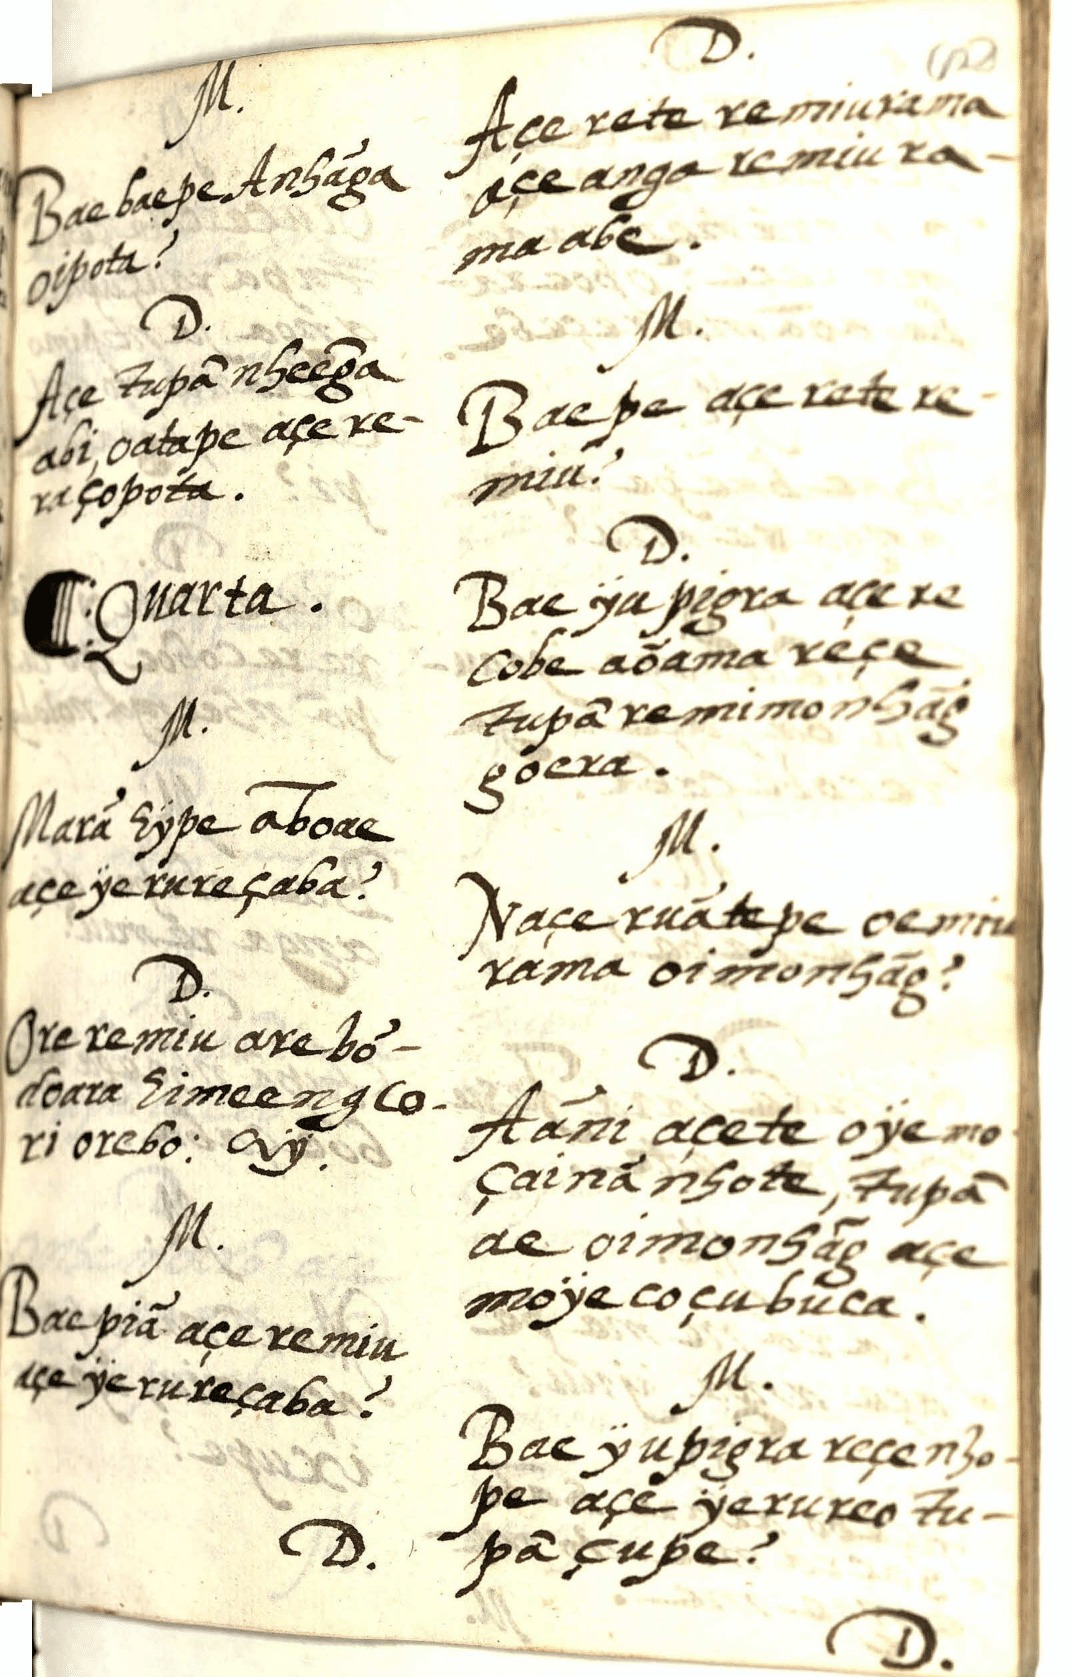 M.
Bae baepe Anhãga
oipota?
D.
Açe tupã nheẽga
abi, oatape açe re-
raçopota.
¶: Quarta.
M.
Marã eÿpe aõboae
açe ÿerureçaba?
D.
Ore remiu are bõ-
doara eimeeng co-
ri orebo: &ÿ.
M.
Bae piã açe remiu
açe ÿerureçaba?
D.
D.
Açe rete remiurama
açe anga remiu ra-
ma abe.
M.
Bae pe açe rete re-
miu?
D.
Bae ÿupigra açe re
cobe aõama reçe
tupã remimonhãg
goera.
M.
Naçe ruã tepe oemiu
rama oimonhãg?
D.
Aãni açete oÿemo
çainã nhote, tupã
ae oimonhãg açe
moÿecoçubuca.
M.
Bae ÿupigra reçe nho-
pe açe ÿerureo tu-
pã çupe?
D.